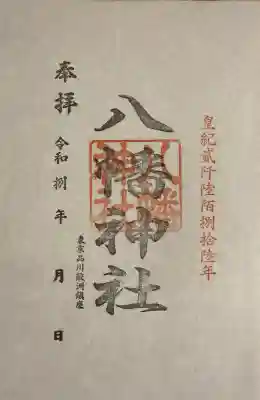 皇紀貳阡陸陌捌拾陸年
八幡神社
東京品川鮫洲鎮座
奉拝
令和捌年 月 日